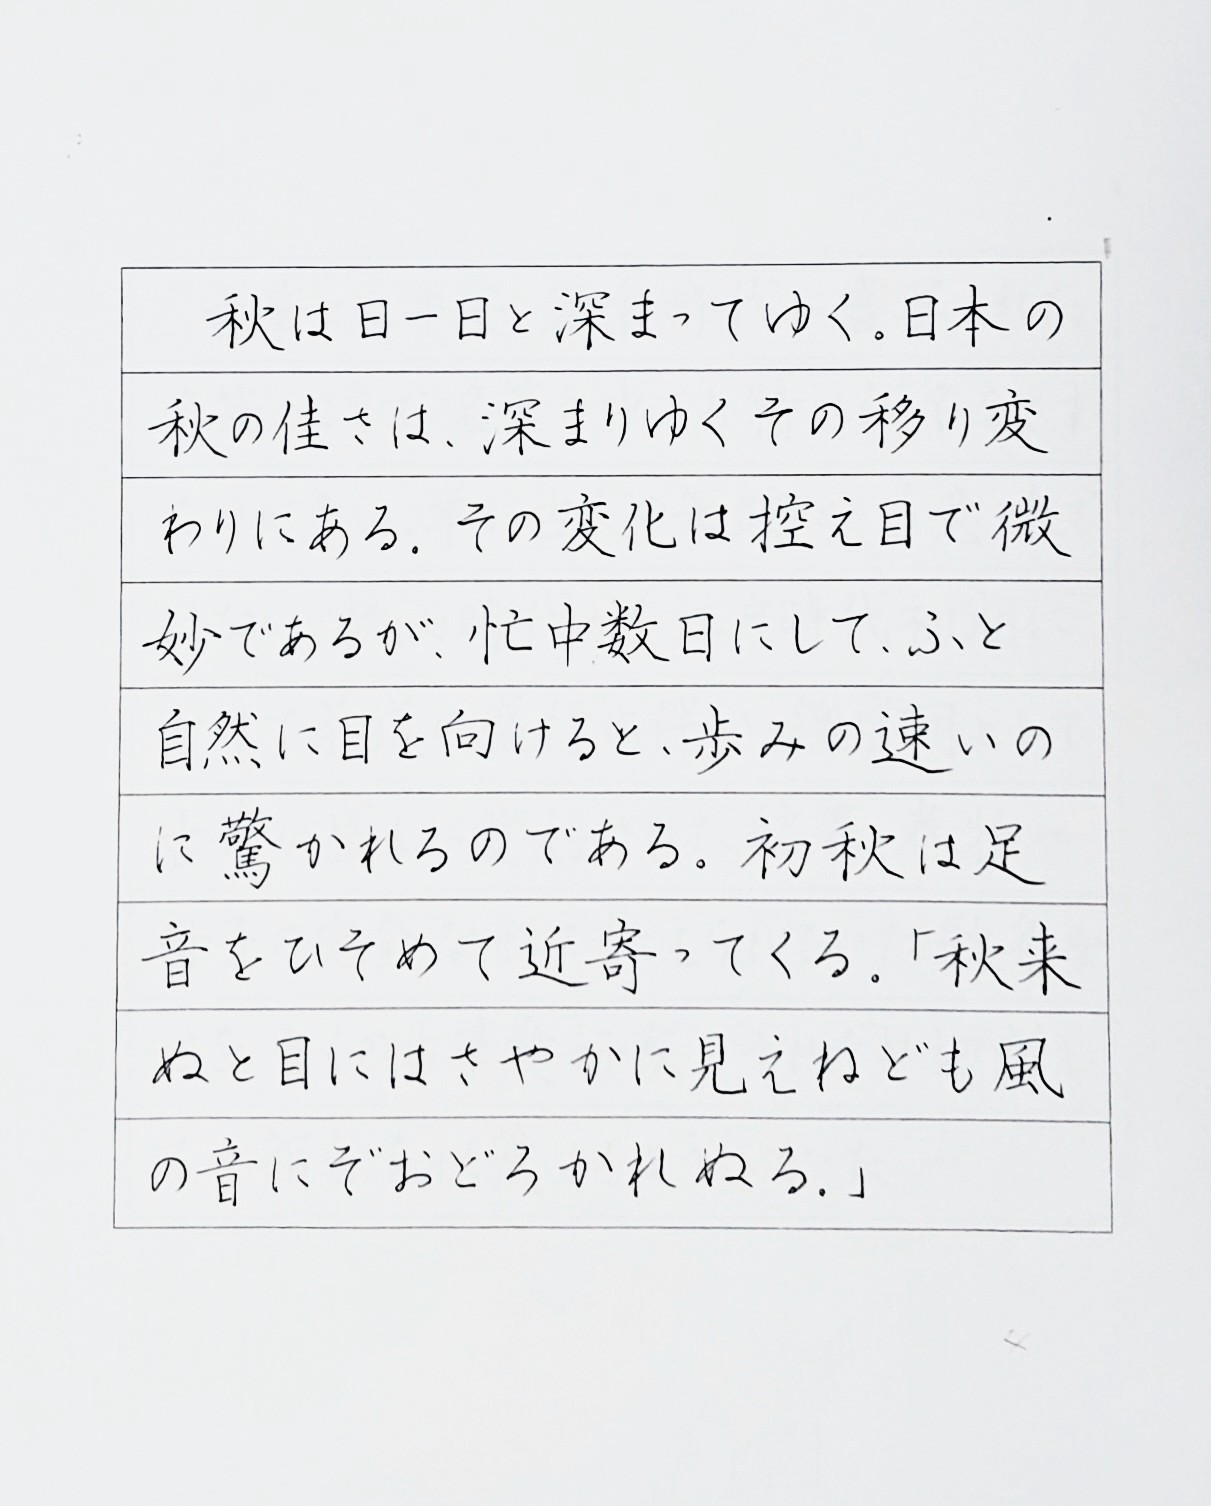 秋は日一日と深まってゆく。日本の
秋の佳さは、深まりゆくその移り変
わりにある。その変化は控え目で微
妙であるが、忙中数日にして、ふと
自然に目を向けると、歩みの速いの
に驚かれるのである。初秋は足
音をひそめて近寄ってくる。「秋来
ぬと目にはさやかに見えねども風
の音にぞおどろかれぬる。」